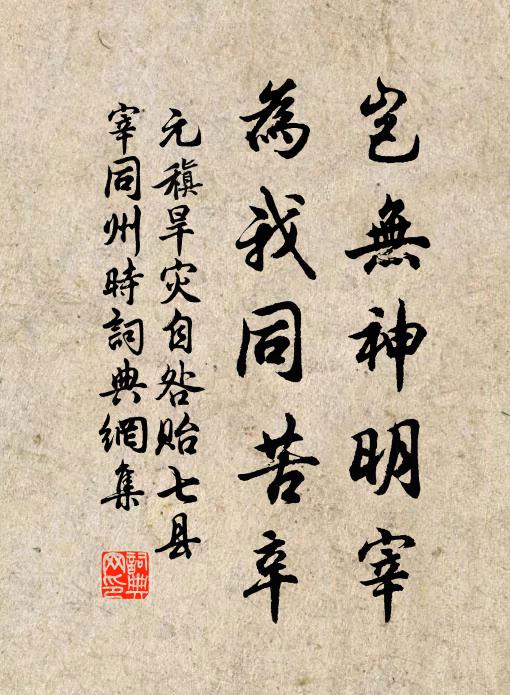 豈無神明宰
為我同苦辛
元稹旱灾自咎貽七县
宰同州時詞典網集
詞典
网印